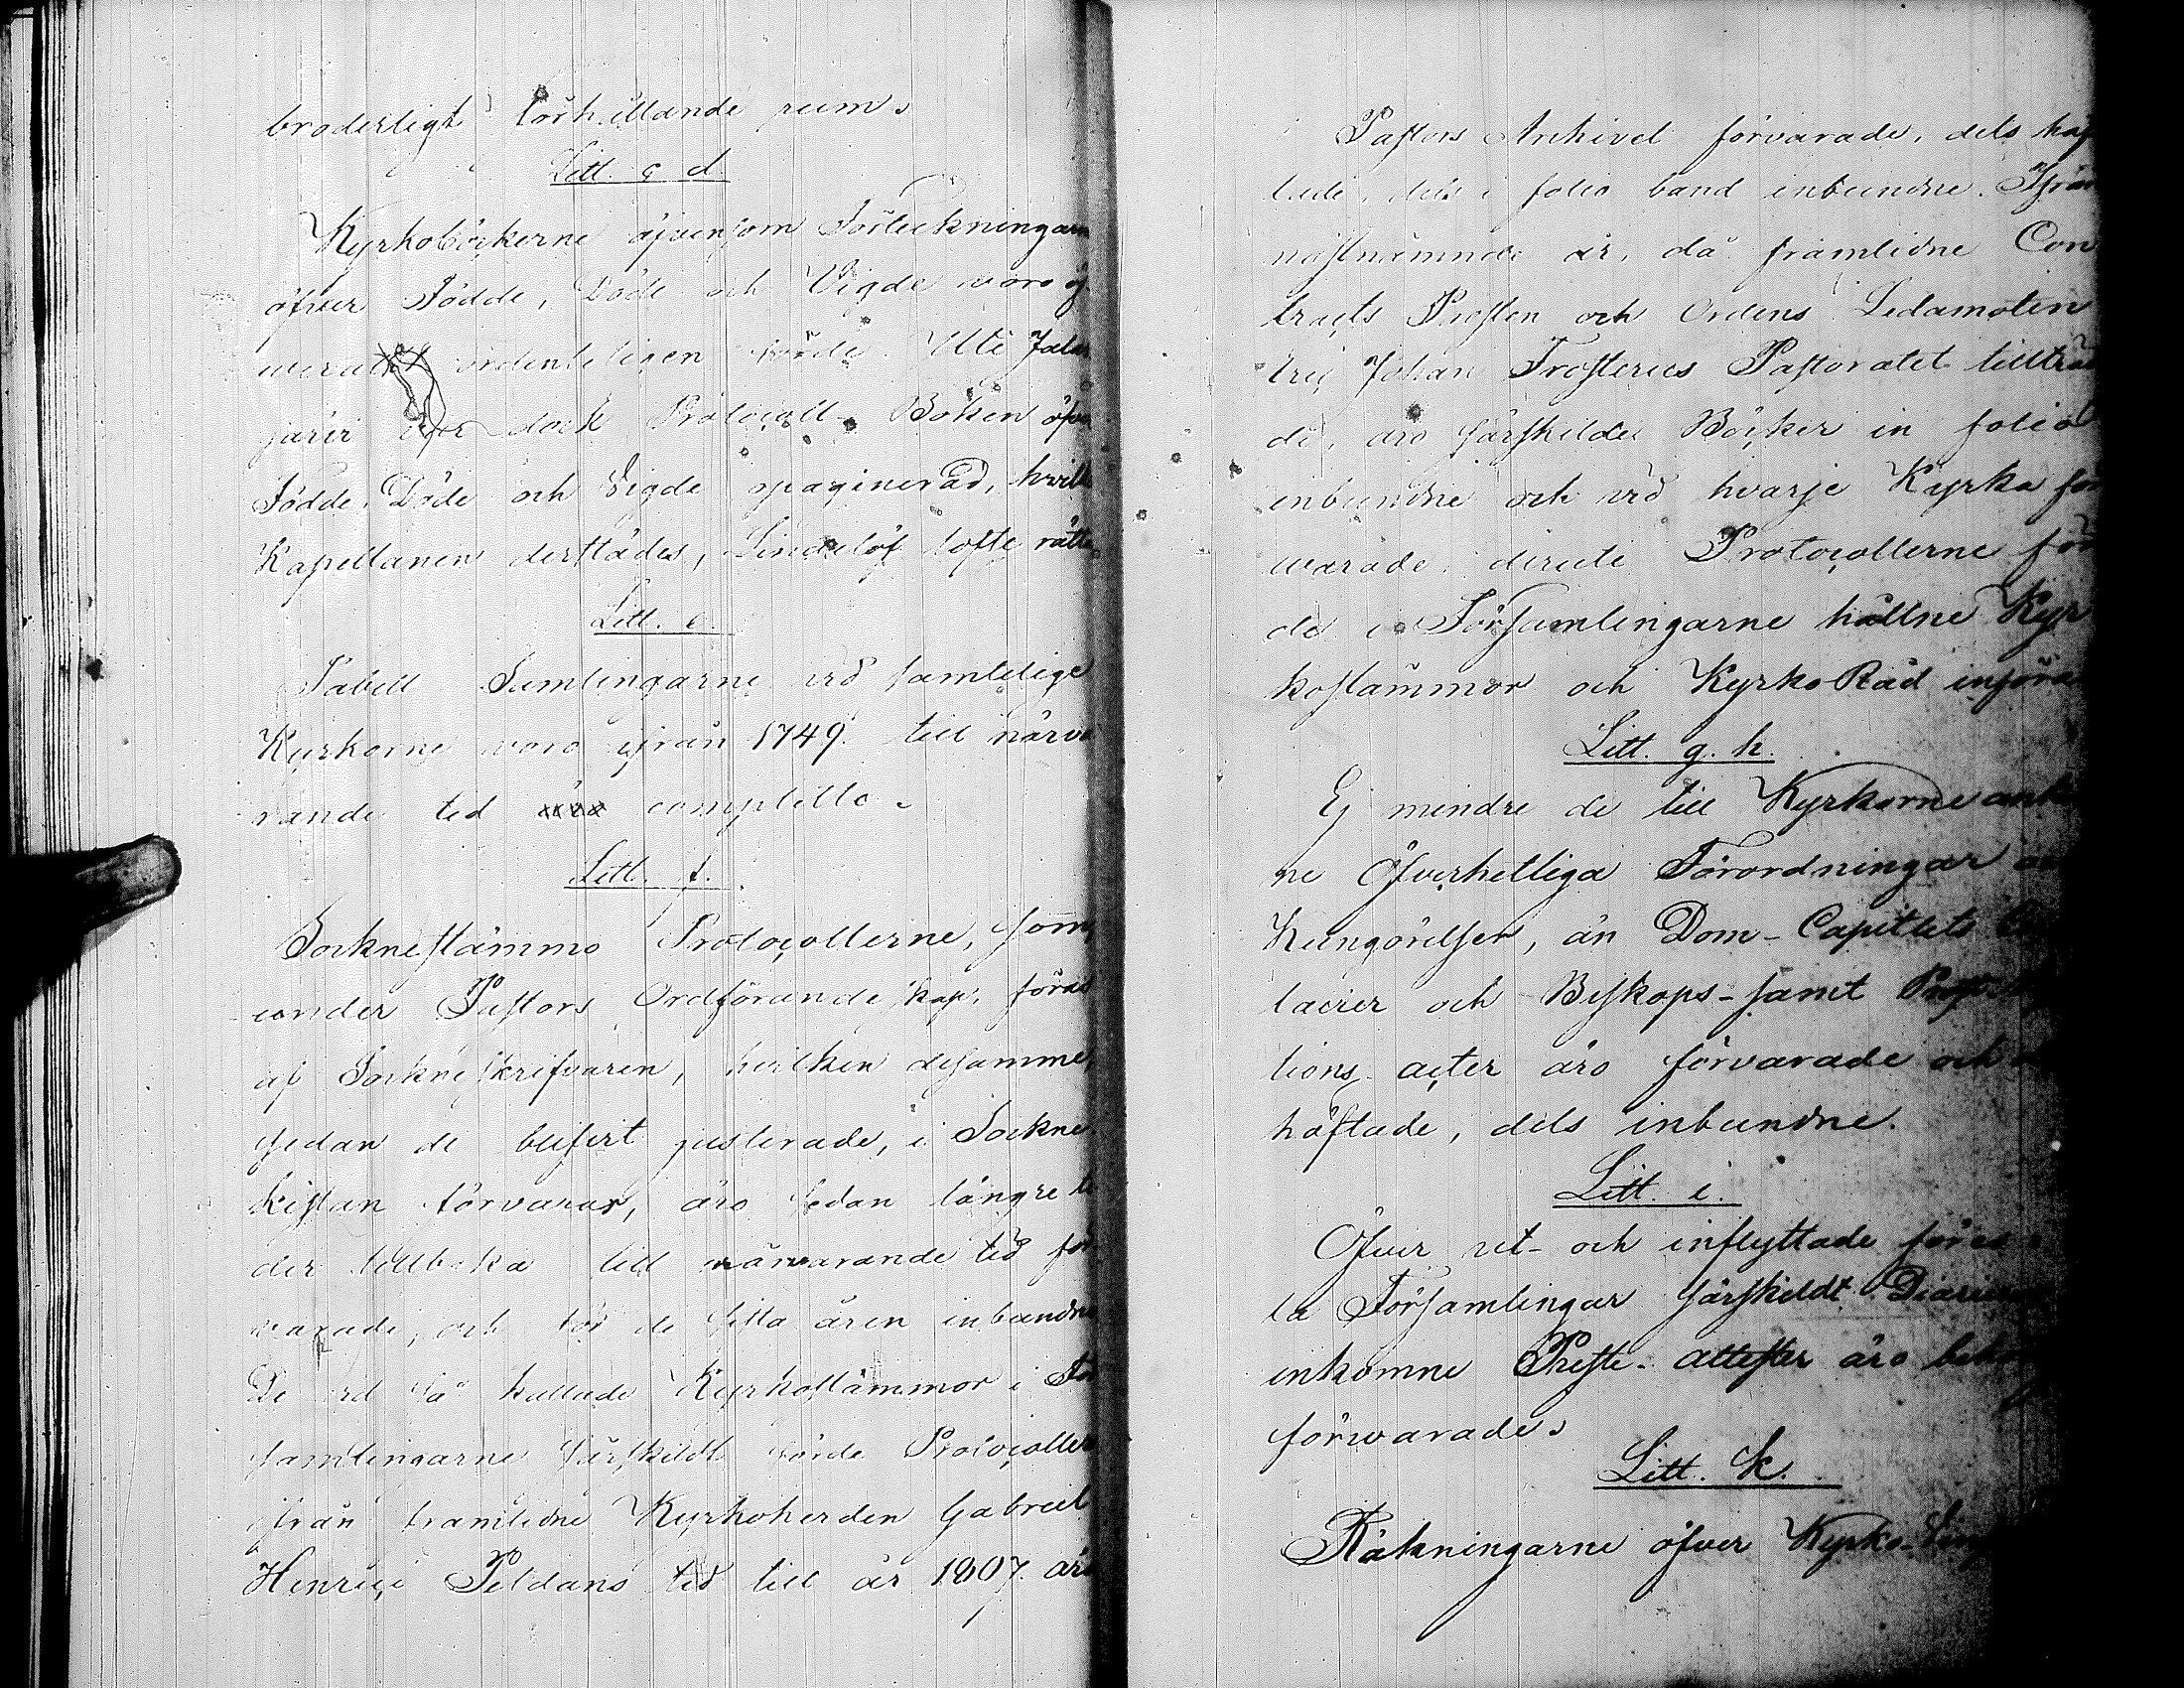 broderligt förhållande rum.
Litt. c d.
Kyrkoböckerne äfvensom Förteckningarn
öfver Födde, Döde och Vigde voro öf
verallt ordenteligen förde. Uti Jalas
järvi är dock Protocoll Boken öfver
Födde, Döde och Vigde opaginerad, hvilk
Kapellanen derstädes, Lindelöf lofte rätta
Litt. e.
Tabell Samlingarne vid samtelige
Kyrkorne voro ifrån 1749. till närva
rande tid completta.
Litt. f.
Sockneståmmo Protocollerne, som,
under Pastors Ordförandeskap, föras
af Sockneskrifvaren, hvilken desamma,
sedan de blifvit justerade, i Sockne-
kistan förvarar, äro sedan längre ti
der tillbaka till närvarande tid för-
varade, och för de sista åren inbundna
De vid så kallade Kyrkostämmor i För
samlingarne särskildt förde Protocoller
ifrån framledne Kyrkoherden Gabriel
Henrici Peldans tid till år 1807. äro
i Pastors Archivet förvarade, dels häf
tade, dels i folio band inbundne. Ifrån
nästnämnde år, då framlidne Con
tracts Prosten och Ordens Ledamoten
Johan Frosterus Pastoratet tillträd
de, äro särskilde Böcker in folio
inbundne och vid hvarje Kyrka för
warade, deruti Protocollerne för
de i Församlingarne hållne Kyr
kostämmor och Kyrko Råd införas
Litt. g. h.
Ej mindre de till Kyrkorne ank
ne Öfverhetliga Förordningar
Kungörelser, än Dom-Capitlets
lairer och Biskops- samt
tions acter äro förvarade och
häftade, dels inbundne.
Litt. i.
Öfver ut- och inflyttade föres
la Församlingar särskildt Diarium
inkomne Preste- attester äro
förwarade.
Litt. k.
Räkningarne öfver Kyrko-